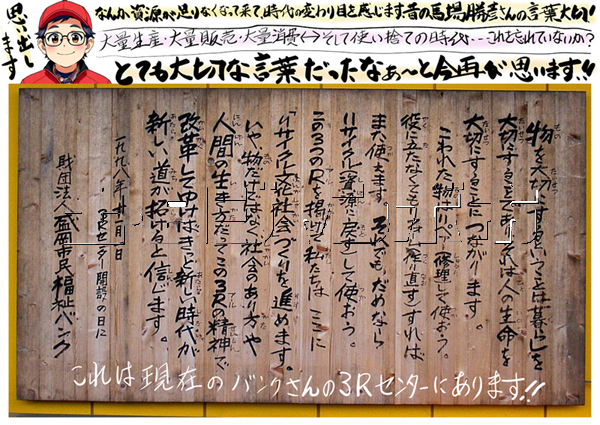 思い出します
なんか資源が足りなくなって来て時代の変わり目を感じます。昔の馬場勝彦さんの言葉大切!
大量生産・大量販売・大量消費<->そして使い捨ての時代…これを忘れていないか?
とても大切な言葉だったなぁ〜と今更が思います!!
物を大切にするということは暮らしを
大切にすることであり それは人の生命を
大切にすることにつながります。
こわれた物はリペア(修理)して使おう。
役に立たなくてもリフォーム(作り直す)すれば
また使えます。それでもだめなら
リサイクル(資源に戻す)して使おう。
この3つのRを掲げて私たちは ここに
「リサイクル文化社会」づくりを進めます。
いや物だけではなく社会のあり方や
人間の生き方だってこの3Rの精神で
改革してゆけばきっと新しい時代が
新しい道が拓けると信じます。
一九九八年十月一日
3Rセンター開設の日に
財団法人 盛岡市民福祉バンク
これは現在のバンクさんの3Rセンターにあります!!